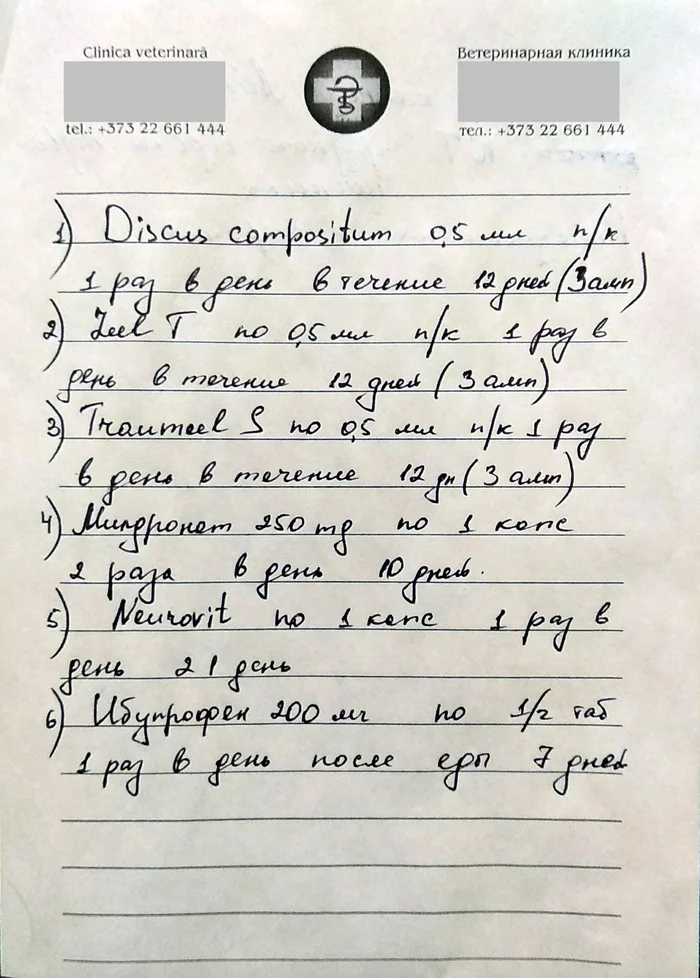 Clinica veterinară
Ветеринарная клиника
tel.: +373 22 661 444
тел.: +373 22 661 444
1) Discus compositum 0,5 мл п/к
1 раз в день в течение 12 дней (3 амп)
2) Zeel T по 0,5 мл п/к 1 раз в
день в течение 12 дней (3 амп)
3) Traumeel S по 0,5 мл п/к 1 раз
в день в течение 12 дн (3 амп)
4) Милдронат 250 mg по 1 капс
2 раза в день 10 дней.
5) Neurovit по 1 капс 1 раз в
день 21 день
6) Ибупрофен 200 мг по 1/2 таб
1 раз в день после еды 7 дней